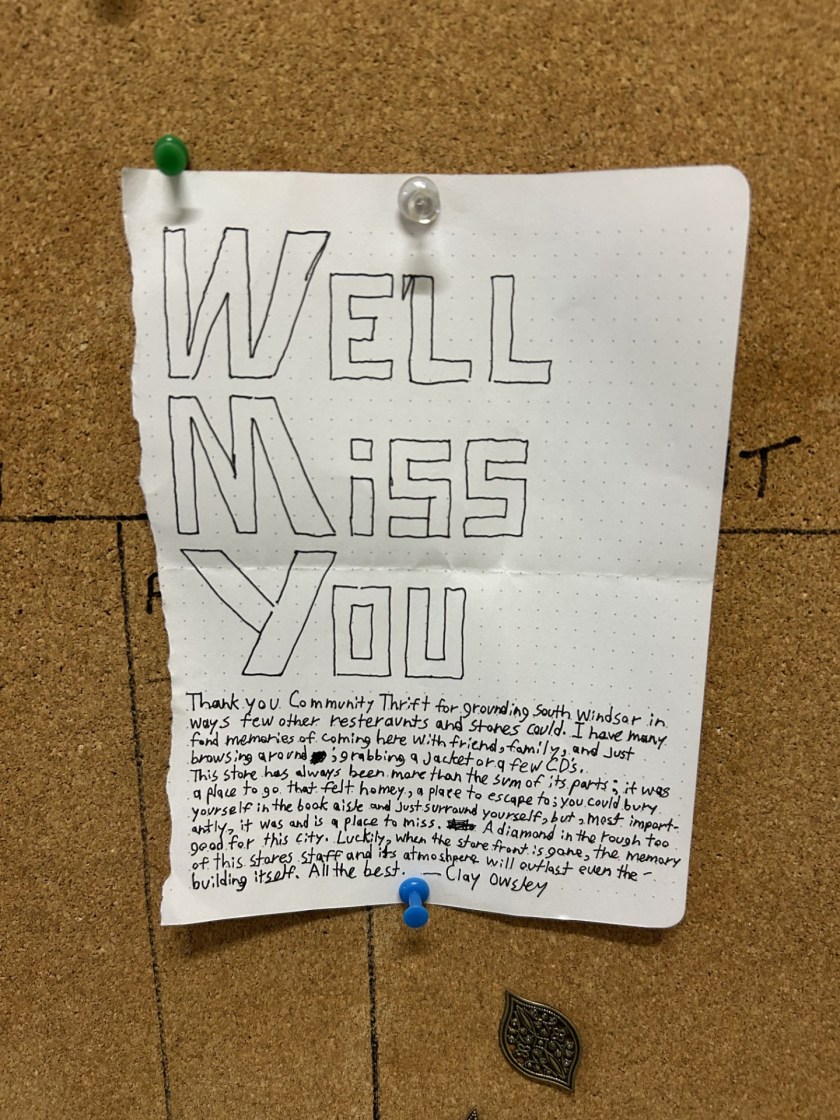 WELL
MiSS
YOU
Thank you Community Thrift for grounding South Windsar in
ways few other resteraunts and stores could. I have many
fond memories of coming here with friend, family, and just
browsing around ; grabbing a jacket or a few CD's.
This store has always been more than the sum of its parts; it was
a place to go that felt homey, a place to escape to; you could bury
yourself in the book aisle and just surround yourself, but, most import-
antly, it was and is a place to miss. A diamond in the rough too
good for this city. Luckily, when the store front is gone, the memory
of this stores staff and its atmoshpere will outlast even the -
building itself. All the best. — Clay Owsley
T